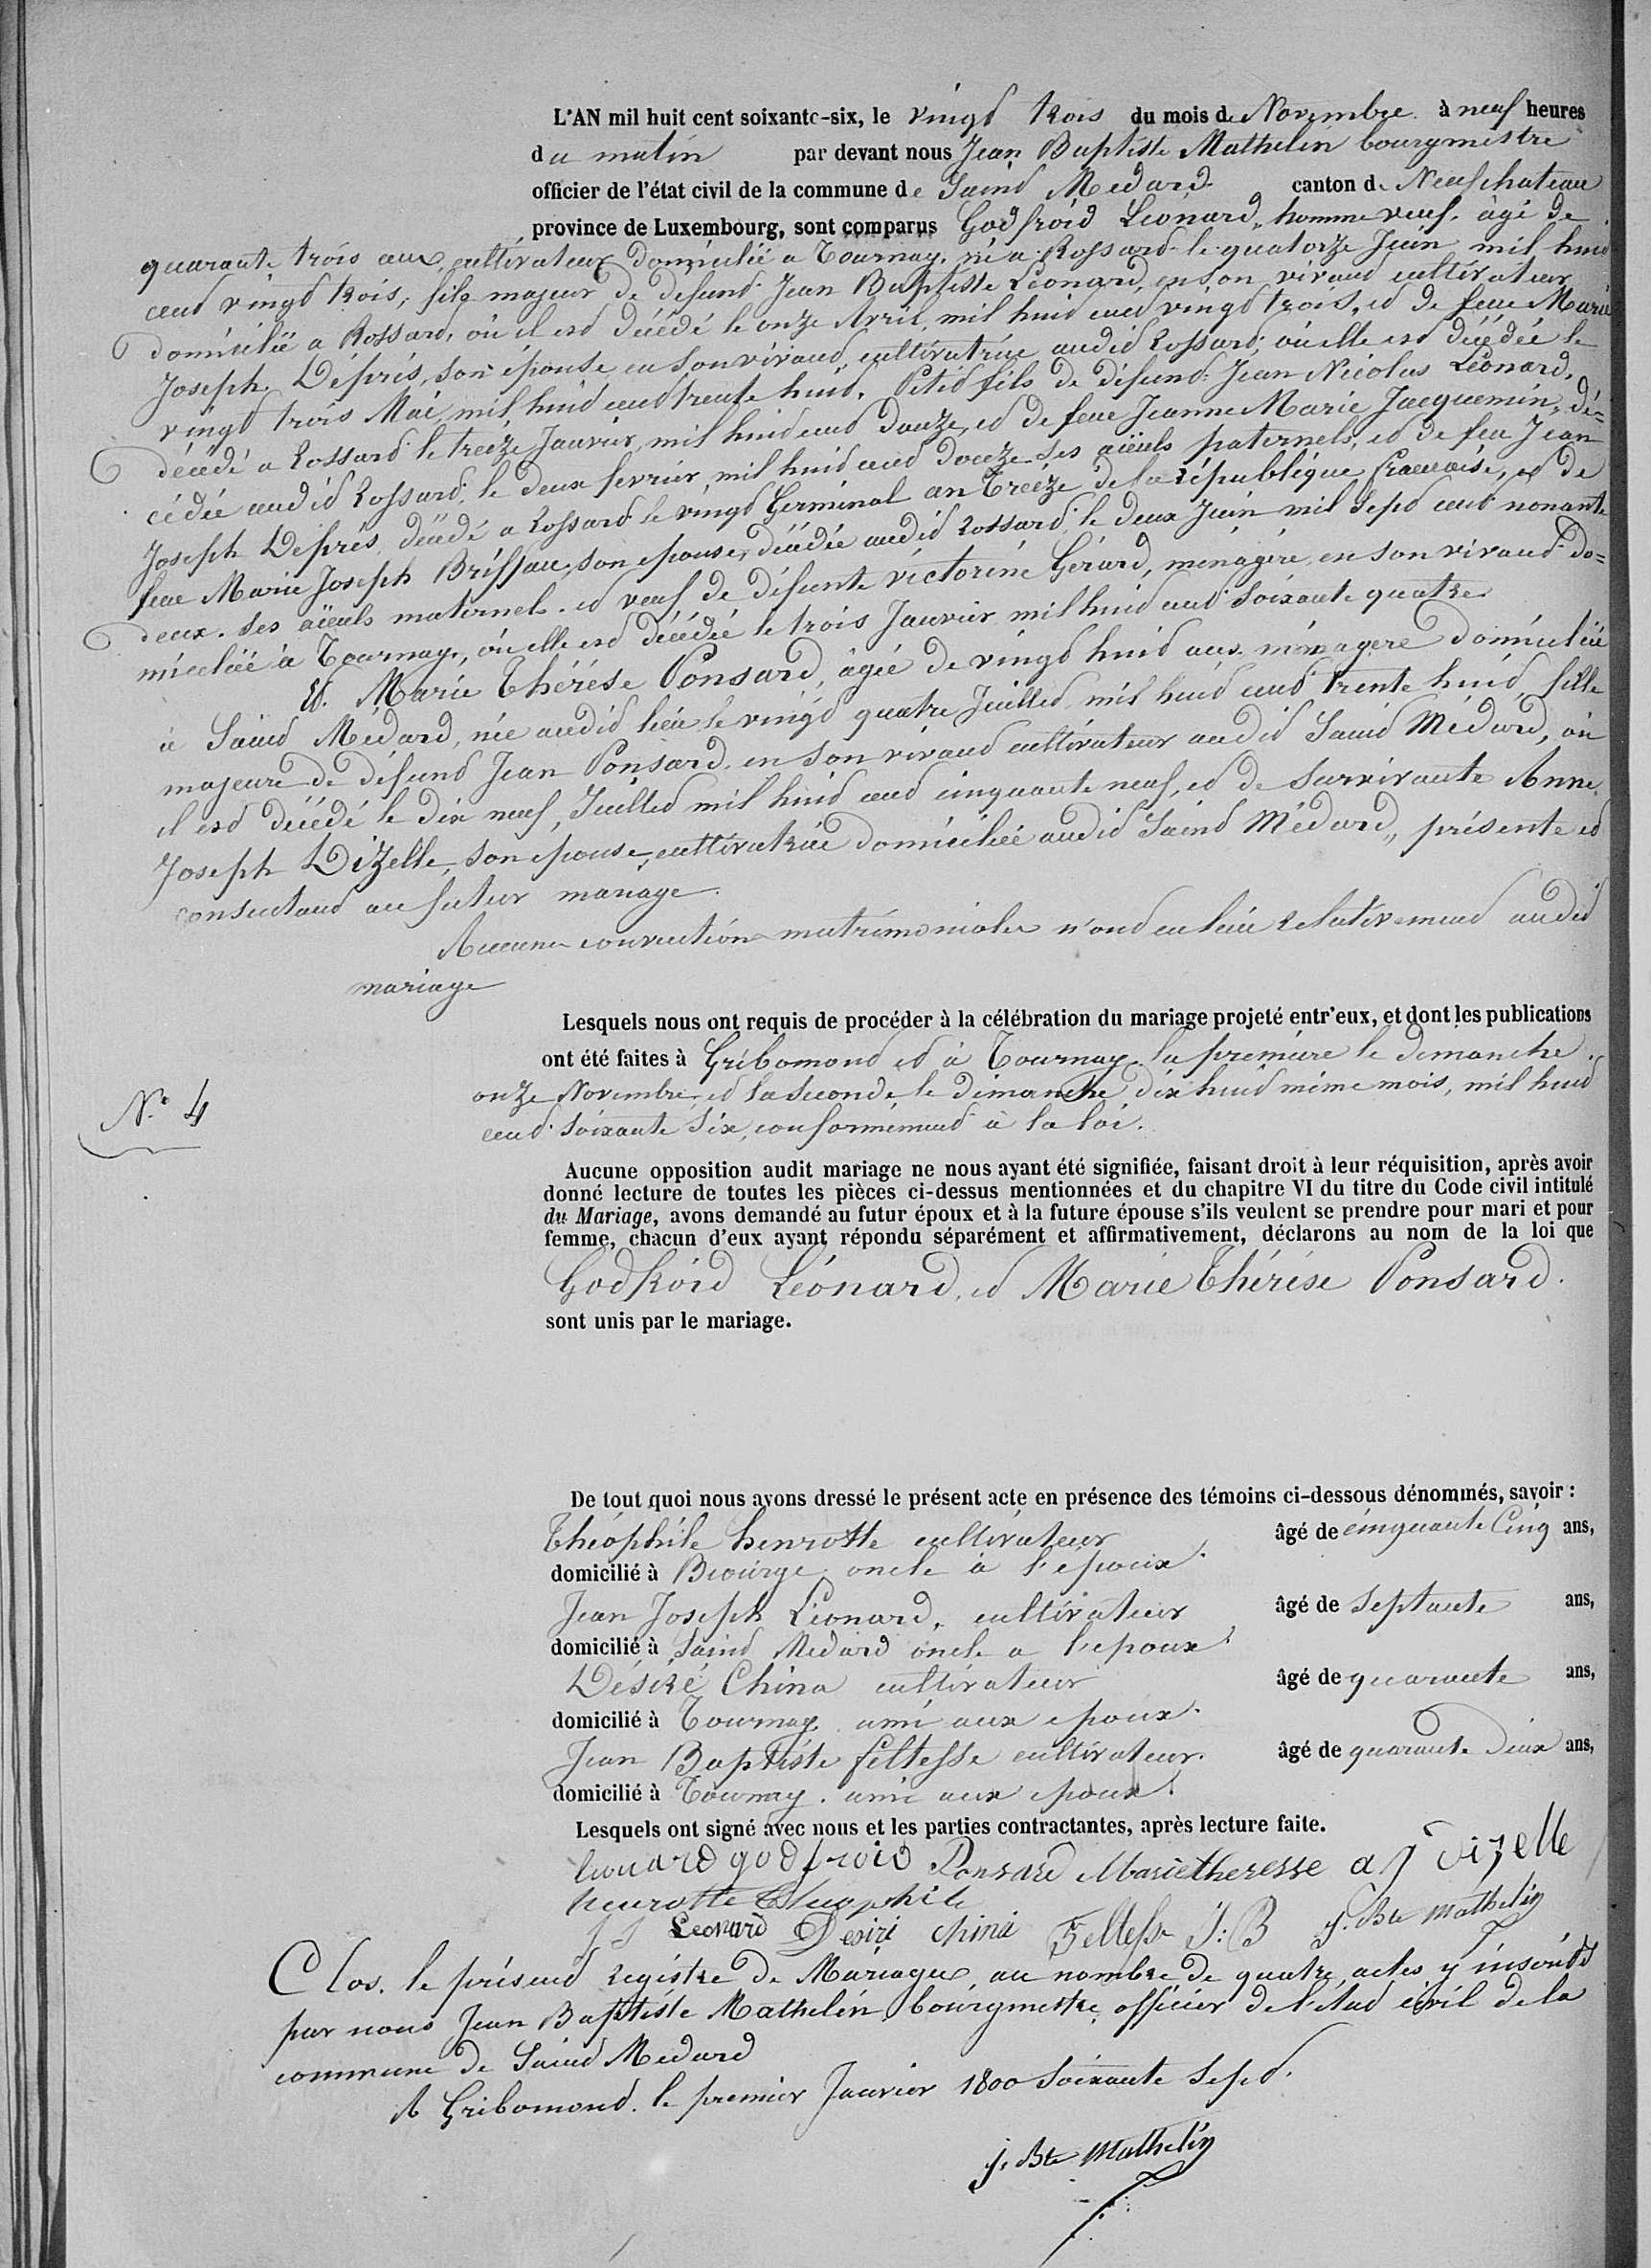 L'AN mil huit cent soixante-six, le vingt trois du mois de Novembre à neuf heures
du matin par devant nous Jean Baptiste Mathelin bourgmestre
officier de l'état civil de la commune de Saint Médard canton de Neufchateau
province de Luxembourg, sont comparus Godfroid Léonard, homme veuf, âgé de
quarante trois ans, cultivateur domicilié à Tournay, né à Rossard le quatorze Juin mil huit
cent vingt trois, fils majeur de défunt Jean Baptiste Léonard, en son vivant cultivateur
domicilié a Rossard, où il est décédé le onze Avril, mil huit cent vingt trois, et de feue Marie
Joseph Déprés, son épouse en son vivant cultivatrice audit Rossard, où elle est décédée le
vingt trois Mai mil huit cent trente huit. Petit fils de défunt Jean Nicolas Léonard,
décédé a Rossard le treize Janvier mil huit cent douze, et de feue Jeanne Marie Jacquemin, dé=
cédée audit Rossard, le deux fevrier mil huit cent douze ses aïeuls paternels, et de feu Jean
Joseph Déprés décédé a Rossard le vingt Germinal an treize de la république francaise, et de
feue Marie Joseph Brissau, son epouse, décédée audit Rossard, le deux Juin mil sept cent nonante
deux. ses aïeuls maternels. et veuf de défunte victorine Gérard, ménagère en son vivant do=
miciliée à Tournay, où elle est décédée le trois Janvier mil huit cent soixante quatre
Et. Marie Thérése Ponsard, âgée de vingt huit ans ménagere domiciliée
à Saint Médard, née audit lieu le vingt quatre Juillet mil huit cent trente huit, fille
majeure de défunt Jean Ponsard en son vivant cultivateur audit Saint Médard, où
il est décédé le dix neuf, Juillet mil huit cent cinquante neuf, et de survivante Anne
Joseph Dizelle, son épouse, cultivatrice domiciliée audit Saint Médard, présente et
consentant au futur mariage.
Aucune convention matrimoniales n'ont eu lieu relativement audit
mariage
Lesquels nous ont requis de procéder à la célébration du mariage projeté entr'eux, et dont les publications
ont été faites à Gribomont et à Tournay la premiere le dimanche
onze Novembre et la seconde le dimanche dix huit même mois, mil huit
cent soixante six, conformément à la loi.
N° 4
Aucune opposition audit mariage ne nous ayant été signifiée, faisant droit à leur réquisition, après avoir
donné lecture de toutes les pièces ci-dessus mentionnées et du chapitre VI du titre du Code civil intitulé
du Mariage, avons demandé au futur époux et à la future épouse s'ils veulent se prendre pour mari et pour
femme, chacun d'eux ayant répondu séparément et affirmativement, déclarons au nom de la loi que
Godfroid Léonard, et Marie Thérése Ponsard.
sont unis par le mariage.
De tout quoi nous avons dressé le présent acte en présence des témoins ci-dessous dénommés, savoir :
Théophile henrotte cultivateur âgé de cinquante Cinq ans,
domicilié à Biourge oncle à l'epoux.
Jean Joseph Léonard, cultivateur âgé de septante ans,
domicilié à Saint Médard oncle a l'epoux
Désiré China cultivateur âgé de quarante ans,
domicilié à Tournay ami aux epoux.
Jean Baptiste feltesse cultivateur. âgé de quarante Deux ans,
domicilié à Tournay. ami aux epoux.
Lesquels ont signé avec nous et les parties contractantes, après lecture faite.
leonard godfroid Ponsard Marietheresse a j Dizelle
henrotte Theophile
J J Leonard Desiré china Feltesse J: B J. Bte Mathelin
Clos. le présent registre de Mariages, au nombre de quatre actes y inscrits
par nous Jean Baptiste Mathelin bourgmestre officier de l'état civil de la
commune de Saint Médard
A Gribomont. le premier Janvier 1800 soixante sept.
J. Bte Mathelin